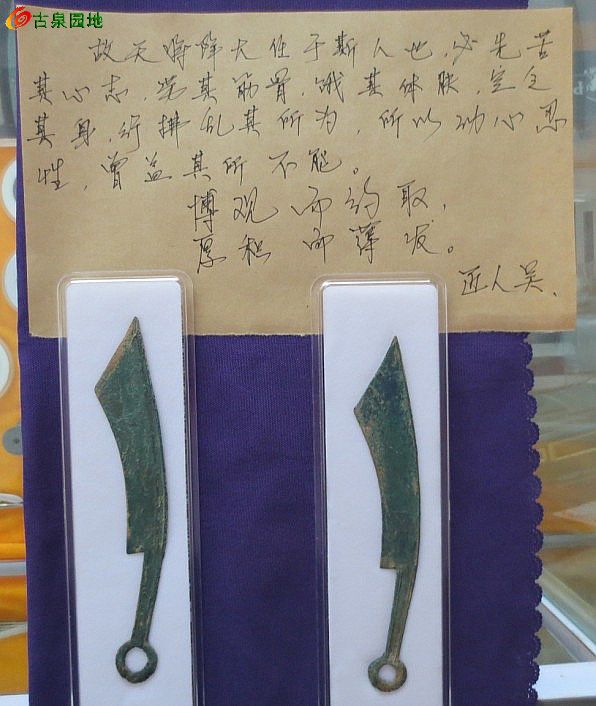 古泉园地
故天将降大任于斯人也，必先苦
其心志，劳其筋骨，饿其体肤，空乏
其身，行拂乱其所为，所以动心忍
性，曾益其所不能。
博观而约取，
厚积而薄发。
近人吴.